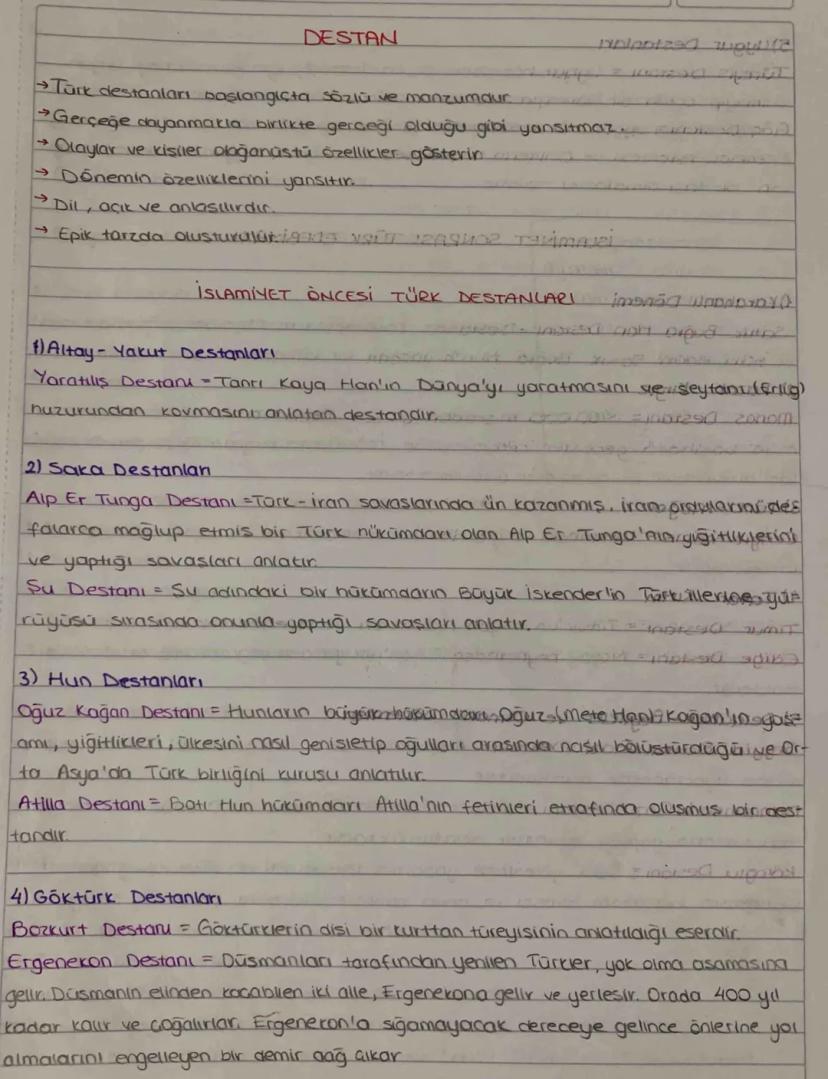 DESTAN
→ Türk destanları başlangıçta sözlü ve manzumdur.
→ Gerçeğe dayanmakla birlikte gerçeği olduğu gibi yansıtmaz.
→ Olaylar ve kişiler olağanüstü özellikler gösterir.
→ Dönemin özelliklerini yansıtır.
→ Dil, açık ve anlaşılırdır.
→ Epik tarzda oluşturulur.
İSLAMİYET ÖNCESİ TÜRK DESTANLARI
1) Altay - Yakut Destanları
Yaratılış Destanı = Tanrı Kaya Han'ın Dünya'yı yaratmasını ve şeytanı (Erlig)
huzurundan kovmasını anlatan destandır.
2) Saka Destanları
Alp Er Tunga Destanı = Türk - İran savaşlarında ün kazanmış, İran ordularını def
falarca mağlup etmiş bir Türk hükümdarı olan Alp Er Tunga'nın yiğitliklerini
ve yaptığı savaşları anlatır.
Şu Destanı = Şu adındaki bir hükümdarın Büyük İskender'in Türk illerine yü-
rüyüşü sırasında onunla yaptığı savaşları anlatır.
3) Hun Destanları
Oğuz Kağan Destanı = Hunların büyük hükümdarı Oğuz (Mete Han) Kağan'ın yaş-
amı, yiğitlikleri, ülkesini nasıl genişletip oğulları arasında nasıl bölüştürdüğü ve Or-
ta Asya'da Türk birliğini kuruşu anlatılır.
Atilla Destanı = Batı Hun hükümdarı Atilla'nın fetihleri etrafında oluşmuş bir des-
tandır.
4) Göktürk Destanları
Bozkurt Destanı = Göktürklerin dişi bir kurttan türeyişinin anlatıldığı eserdir.
Ergenekon Destanı = Düşmanları tarafından yenilen Türkler, yok olma aşamasına
gelir. Düşmanın elinden kaçabilen iki aile, Ergenekona gelir ve yerleşir. Orada 400 yıl
kadar kalır ve çoğalırlar. Ergenekon'a sığamayacak dereceye gelince önlerine yol
almalarını engelleyen bir demir dağ çıkar